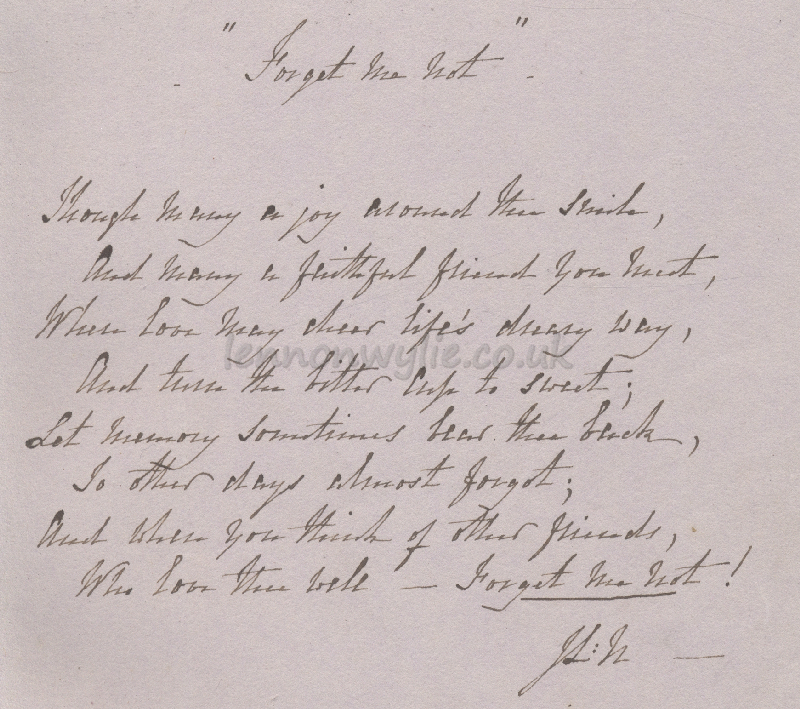 "Forget Me Not".
Though many a joy around thee smile,
And many a faithful friend you meet,
When love may cheer life's dreary way,
And turn the bitter cup to sweet;
Let memory sometimes bear thee back,
To other days almost forgot;
And when you think of other friends,
Who love thee well — Forget Me Not!
lennonwylie.co.uk